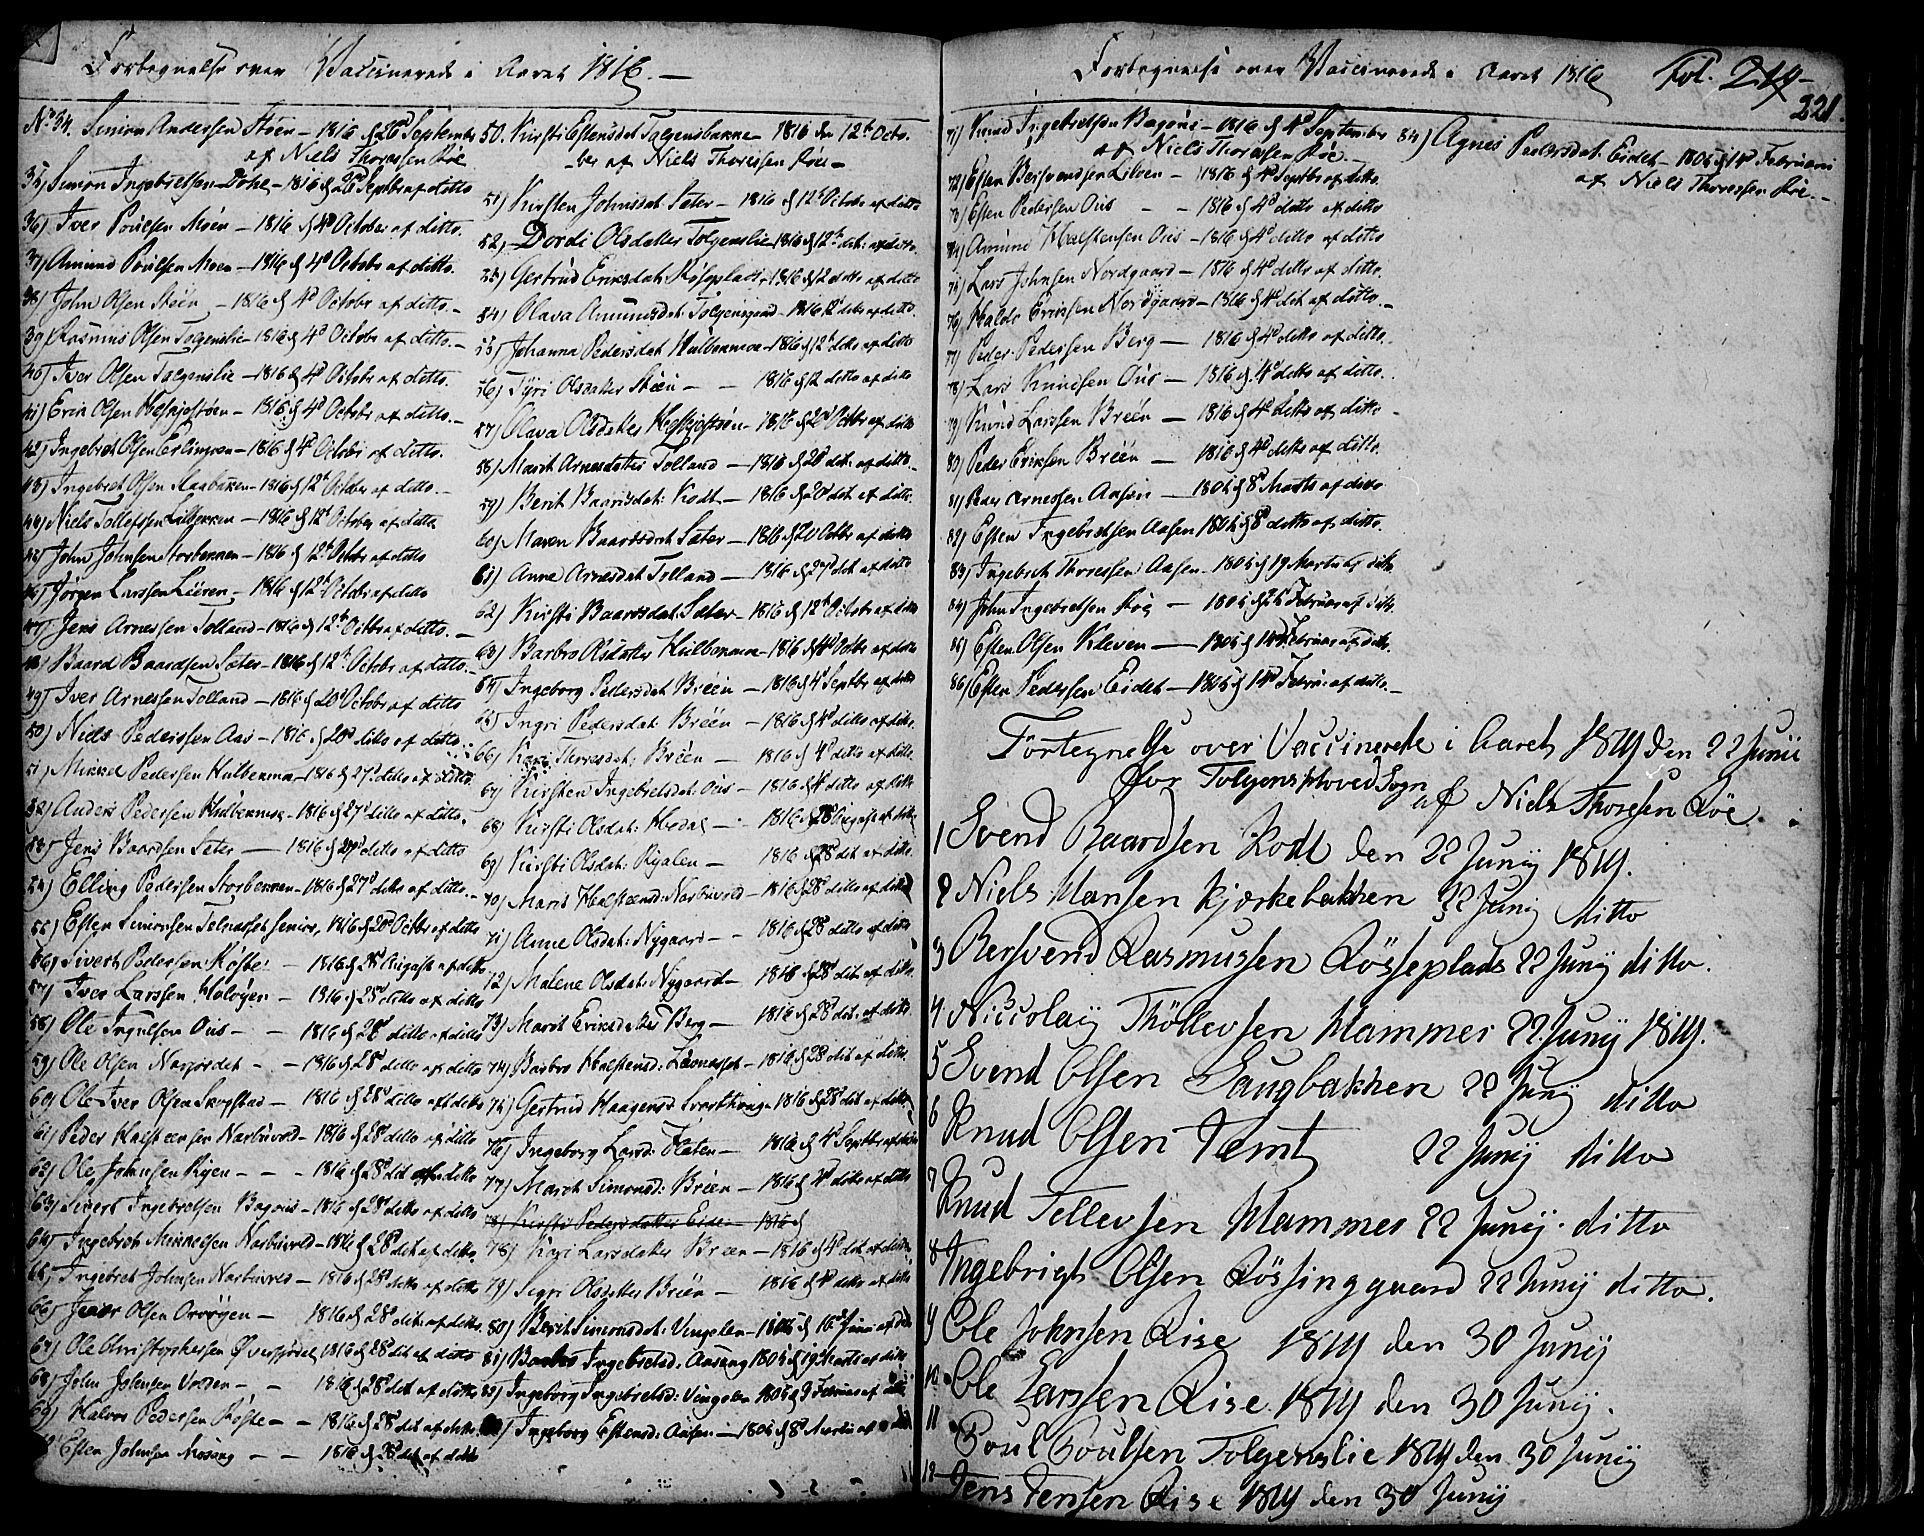 Fortegnelse over Vaccinerede i Aaret 1816.
No 34. Simon Andersen Støen – 1816 d 28d September
af Niels Thoressen Røe
35) Simon Ingebretsen Døhe – 1816 d 28d Septbr af ditto
36) Iver Poulsen Moen – 1816 d 4d October af ditto.
37) Amund Poulsen Moen – 1816 d 4d Octobr af ditto.
38) John Olsen Støen – 1816 d 4d October af ditto.
39) Rasmus Olsen Tolgenslie – 1816 d 4d Octobr af ditto.
40) Iver Olsen Tolgenslie – 1816 d 4d Octobr af ditto.
41) Erik Olsen – 1816 d 4d Octobr af ditto.
42) Ingebret Olsen Erlingmoen – 1816 d 4d Octobr af ditto.
43) Ingebret Olsen – 1816 d 12t October af ditto.
44) Niels Tollefssen Lilbekken – 1816 d 12t October af ditto
45) John Johnsen Storbekken – 1816 d 12t Octobr af ditto
46) Jørgen Larssen – 1816 d 12t Octobr af ditto
47) Jens Arnessen Tolland – 1816 d 12t Octobr af ditto.
48) Baard Baardsen Sæter – 1816 d 12t Octobr af ditto.
49) Iver Arnessen Tolland – 1816 d 20d Octobr af ditto
50) Niels Pederssen Aas – 1816 d 20d ditto af ditto
51) Mikkel Pedersen Hulbekmoe – 1816 d 27d ditto af ditto
52) Anders Pedersen Hulbekmoe – 1816 d 27d ditto af ditto.
53) Jens Baardsen Sæter – 1816 d 27d ditto af ditto
54) Elling Pedersen Storbekken – 1816 d 27d ditto af ditto.
55) Esten Simonsen Senior, 1816 d 20d Octbr af ditto
56) Sivert Pedersen – 1816 d 28d August af ditto
57) Iver Larssen Haløyen – 1816 d 28d ditto af ditto
58) Ole Ous – 1816 d 28d ditto af ditto
59) Ole Olsen – 1816 d 28d ditto af ditto
60) Ole Iver Olsen Skogstad – 1816 d 28d ditto af ditto
61) Peder Halsteensen Narbuvold – 1816 d 28d ditto af ditto
62) Ole Johnsen Ryen – 1816 d 28d dit af ditto
63) Sivert Ingebretsen Bagøus – 1816 d 28d ditto af ditto
64) Ingebret Mikkelsen Narbuvold – 1816 d 28d dit af ditto
65) Ingebret Johnsen Narbuvold – 1816 d 28d ditto af ditto
66) Olsen – 1816 d 28d dit af ditto
67) Ole Christophersen 1816 d 28d dit af ditto
68) John Johnsen – 1816 d 28d ditto af ditto
69) Halvor Pedersen – 1816 d 28d dit af ditto
70) Esten Johnsen Mosæng – 1816 d 28d dit af ditto
50. Kirsti Estensdat Tolgensbakke – 1816 den 12t Octo-
ber af Niels Thoressen Røe
51) Kirsten Johnsdat Sæter – 1816 d 12t Octobr af ditto
52) Dordi Olsdatter Tolgenslie 1816 d 12t dit: af ditto
53) Gertrud Eriksdat: – 1816 d 12 ditto af ditto
54) Olava Amundsdat Tolgensgaard – 1816 12t ditto af ditto
55) Johanna Pedersdat Hulbekmoe – 1816 d 12t ditto af ditto
56) Tyri Olsdatter Støen – 1816 d 12 ditto af ditto
57) Olava Olsdatter – 1816 d 20d Octbr af ditto
58) Marit Arnesdatter Tolland – 1816 d 20 dit: af ditto
59) Berit Baardsdat: Kodt – 1816 d 20d dit af ditto
60) Maren Baardsdat Sæter – 1816 d 20 Octbr af ditto
61) Anne Arnesdat Tolland – 1816 d 27d dit af ditto
62) Kirsti Baardsdat: Sæter – 1816 d 12t Octobr af ditto
63) Barbro Olsdatter Hulbekmoe – 1816 d 4d Octbr af ditto
64) Ingeborg Pedersdat Bréen – 1816 d 4d Septbr af ditto
65) Ingri Pedersdat: Bréen – 1816 d 4d ditto af ditto.
66) Kari Thoresdat: Bréen – 1816 d 4d ditto af ditto.
67) Kirsten Ingebretsdat: Ous – 1816 d 4d ditto af ditto
68) Kirsti Olsdat: – 1816 d 28 August af ditto
69) Kirsti Olsdat: Ryalen – 1816 d 28d dit af ditto.
70) Marit Halsteensd: Narbuvold – 1816 d 28 ditto af ditto
71) Anne Olsdat: Nygaard – 1816 d 28 ditto af ditto
72) Malene Olsdat: Nygaard – 1816 d 28d dit af ditto
73) Marit Eriksdatter Berg – 1816 d 28 dit. af ditto.
74) Barbro Halstensd: – 1816 d 28 dit af ditto.
75) Gertrud Haagensd – 1816 d 28 dit af ditto
76) Ingeborg Larsd: – 1816 d 4d Septbr af ditto
77) Marit Simonsd: Bréen – 1816 d 4d ditto af ditto
78) Kirsti Pedersdatter Eidet – 1816 d
78) Kari Larsdatter Bréen – 1816 d 4d dit af ditto
79) Sigri Olsdatter Bréen – 1816 d 4d ditto af ditto
80) Berit Simonsdat: Vingelen – d 16d af ditto
81) Barbro Ingebretsd. Aasæng 1805 d 19 Marti af ditto
82) Ingeborg Ingebretsd: Vingelen – 1805 d 9 Februar af ditto
Ingeborg Estensd: Aasen – 1805 d 8d Martii af ditto
Fortegnelse over Vaccinerede i Aaret 1816 Fol. 219
221.
71) Knud Ingebretsen Bagøus – 1816 d 4d September
af Niels Thoressen Røe.
72) Esten Bersvendsen Lilleen – 1816 d 4d Septbr af ditto.
73) Esten Pedersen Ous – 1816 d 4d ditto af ditto
74) Amund Halstensen Ous – 1816 d 4d ditto af ditto
75) Lars Johnsen Nordgaard – 1816 d 4d ditto af ditto.
76) Haldo Eriksen Nordgaard – 1816 d 4d dit af ditto.
77) Peder Pedersen Berg – 1816 d 4d ditto af ditto.
78) Lars Knudsen Ous – 1816 d 4d ditto af ditto.
79) Knud Larssen Bréen – 1816 d 4d ditto af ditto
80) Peder Eriksen Bréen – 1816 d 4d ditto af ditto.
81) Peder Arnessen Aasen – 1805 d 8d Marti af ditto
82) Esten Ingebretsen Aasen 1805 d 8d ditto af ditto.
83) Ingebret Thoressen Aasen – 1805 d 19 Marti af ditto
84) John Ingebretsen Røe – 1805 d 25 Februar af ditto.
85) Esten Olsen Kleven – 1805 d 14d Februar af ditto.
86) Esten Pedersen Eidet – 1805 d 14d Febru: af ditto.
84) Agnes Pedersdat: Eidet – 1805 d 14d Februari
af Niels Thoressen Røe.
Fortegnelse over Vaccinerede i Aaret 1819 den 22 Junii
for Tolgens Hoved Sogn af Niels Thoresen Røe.
1 Svend Baardsen Kodt den 22 Junij 1819.
2 Niels Hansen Kjærkebakken 22 Junij ditto
3 Bersvend Rasmussen Røsseplads 22 Junij ditto.
4 Niccolaij Thøllevsen Hammer 22 Junij 1819.
5 Svend Olsen Saugbakken 22 Junij ditto
6 Knud Olsen Temt 22 Junij ditto
7 Knud Tellevsen Hammer 22 Junij. ditto
8 Ingebrigt Olsen Røssinggaard 22 Junij ditto.
9 Ole Johnsen Rise 1819 den 30 Junij
10 Ole Larssen Rise 1819 den 30 Junij.
11 Poul Poulsen Tolgenslie 1819 den 30 Junij
12 Jens Jenssen Rise 1819 den 30 Junij